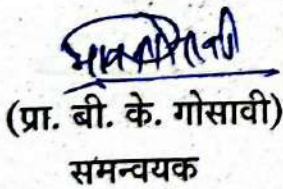 (प्रा. बी. के. गोसावी)
समन्वयक